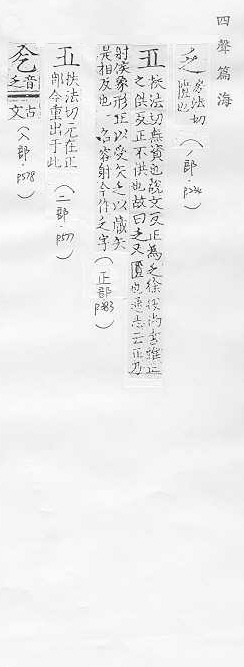 四聲篇海
乏 房法切匱也（丿部·p
𠓟 扶法切無資也說文反正為乏徐
之供反正不供也故曰乏又匱也通志云正乃
射侯象形正以受矢乏以蔽矢
是相反也一名容射今作乏字（正部p
扶法切元在正
部今重出于此（二部·p577）
音乏 古文（八部·p578）